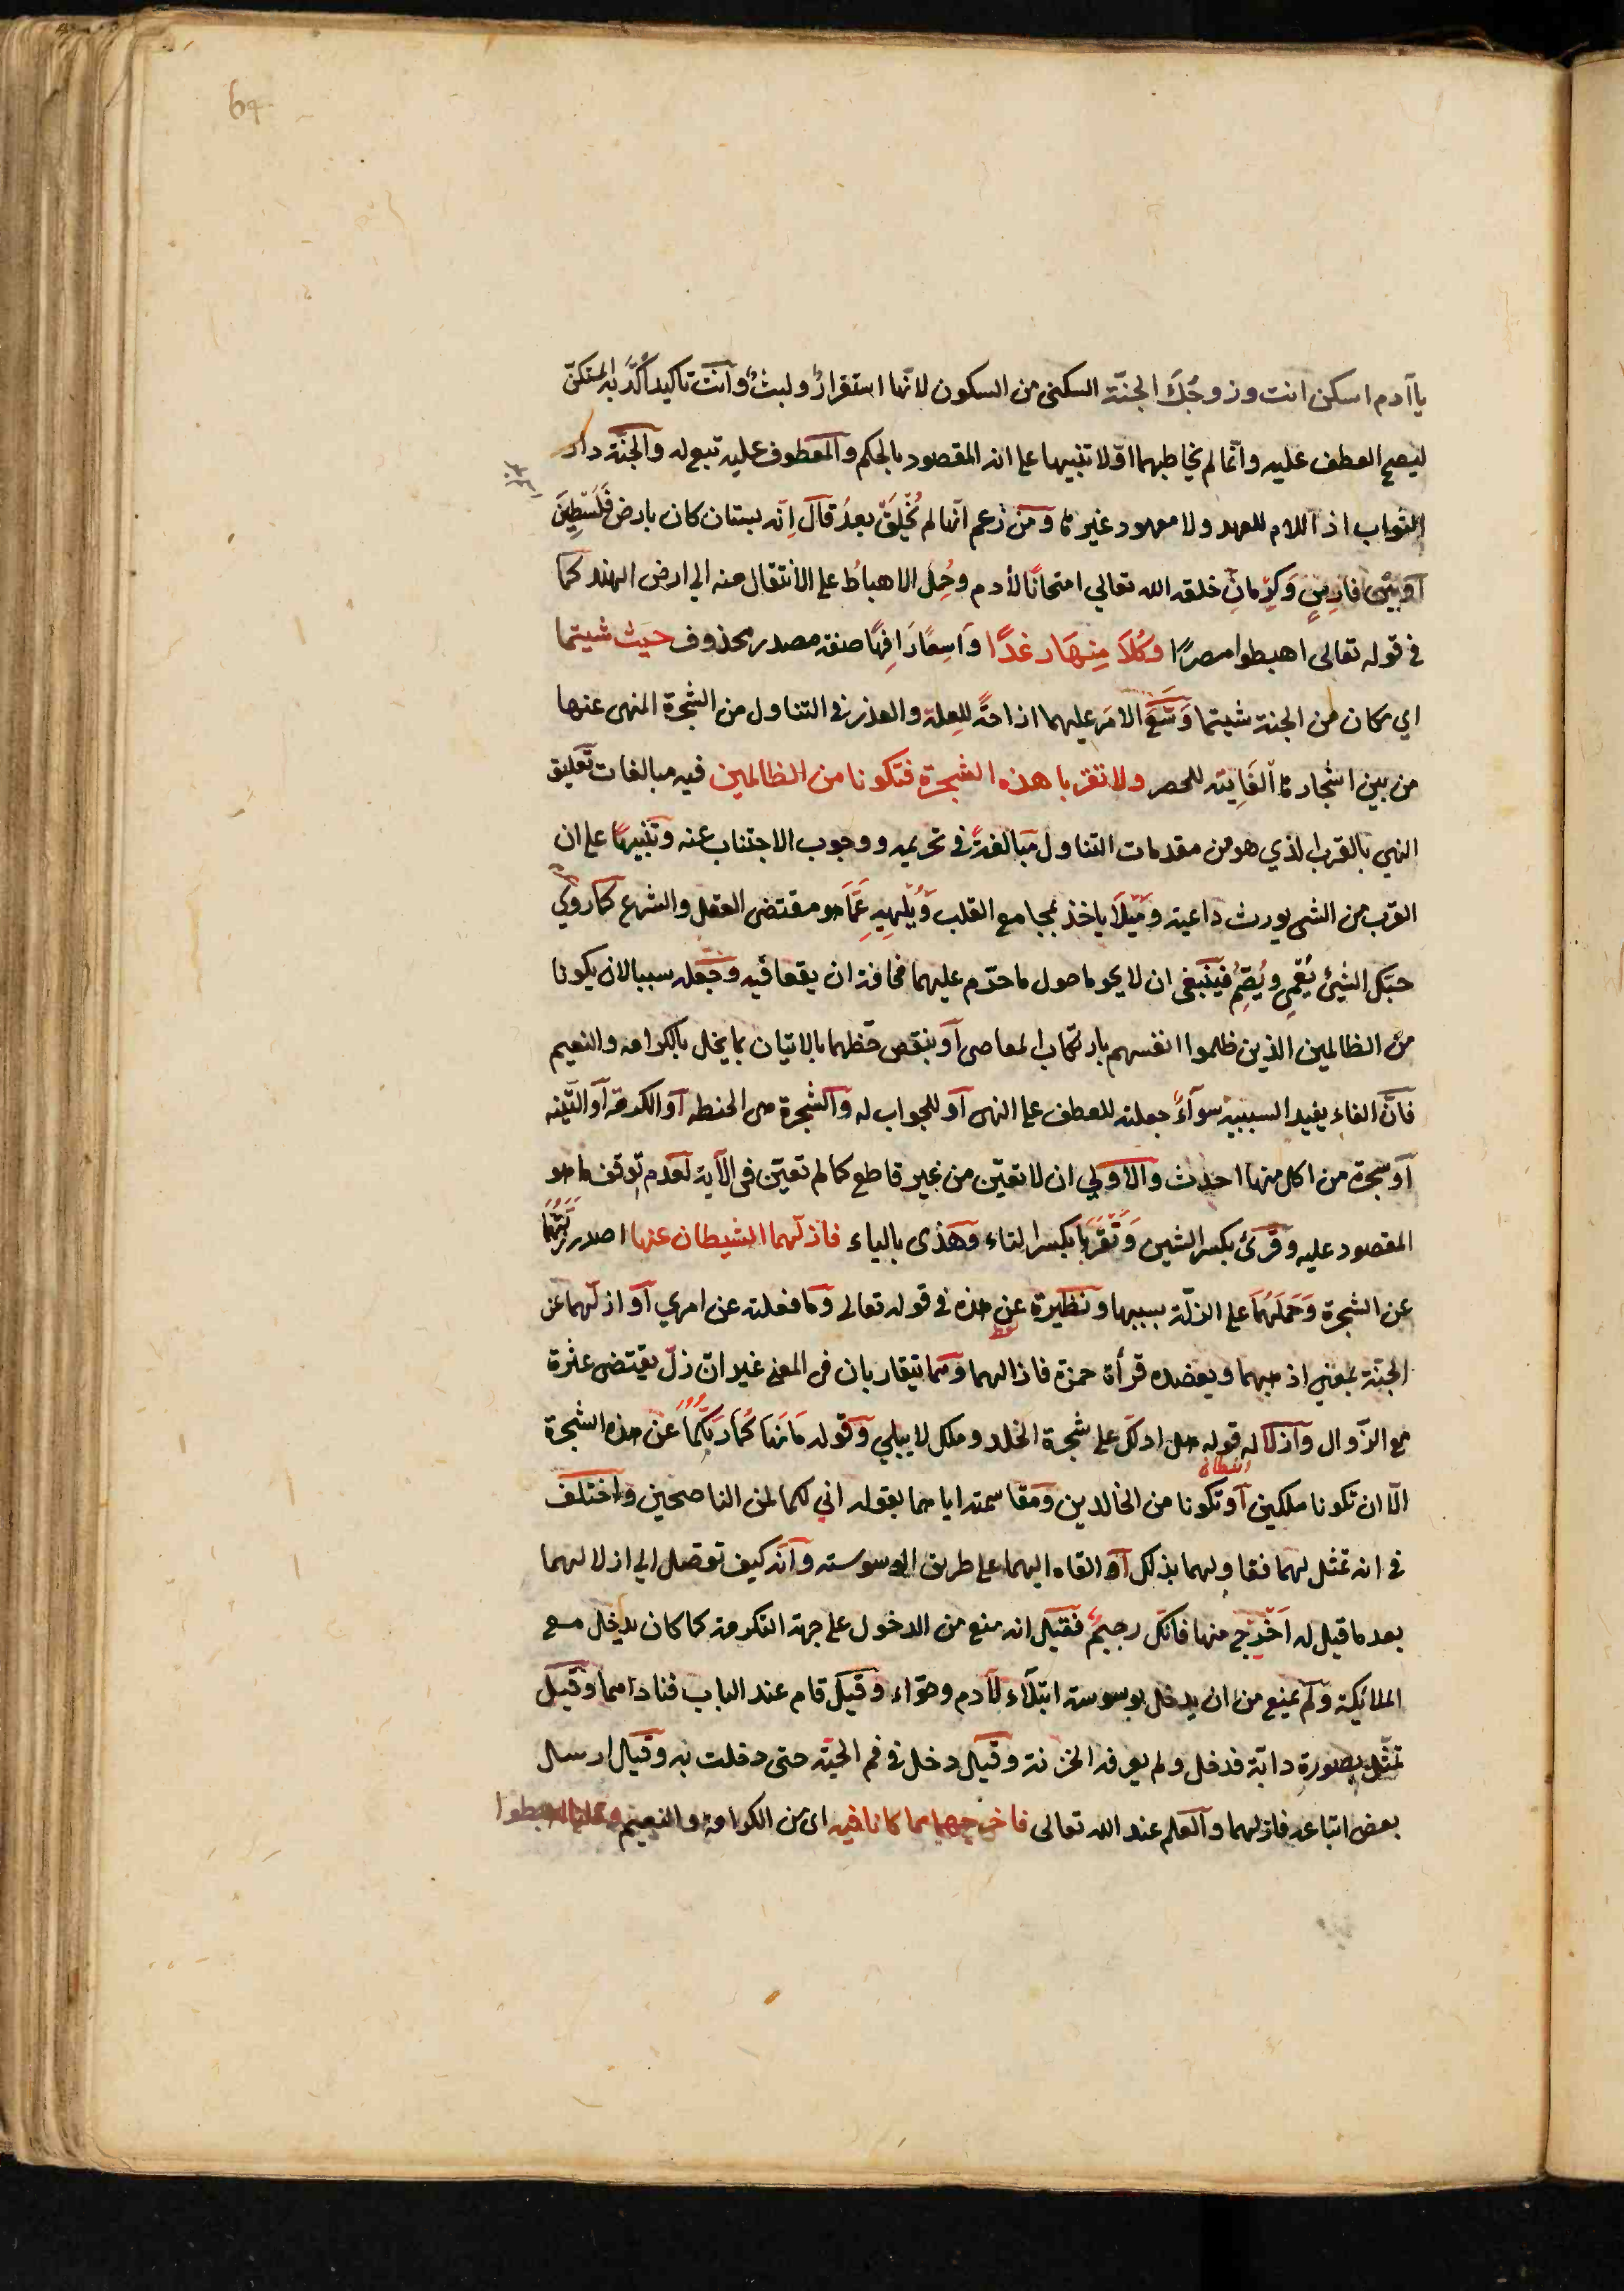 64
يا آدم اسكن انت وزوجك الجنّة السكنى من السكون لانّها استقرارٌ ولبثٌ وانت تاكيد اكّد به المستكنّ
ليصح العطف عليه وانّما لم يخاطبهما اوّلا تنبيها على انه المقصود بالحكم والمعطوف عليه تبع له والجنّة دار
الثواب اذ اللام للعهد ولا معهود غيرها ومن زعم انّها لم تُخلَق بعدُ قال اِنّه بستان كان بارض فَلَسْطِينَ
او بين فارِسٍ وكِرْمانِ خلقه الله تعالي امتحانًا لأدم وحُمِل الاهباطُ على الانتقال منه الي ارض الهند كما
في قوله تعالى اهبطوا مصرًا وكُلَا مِنهَا رغدًا وَاسِعًا رَافِهًا صفة مصدر محذوف حيث شيتما
اي مكان من الجنة شيتما وَسَّعَ الامَر عليهما اذاحةً للعِلة والعذر في التناول من الشجرة المنهى عنها
من بين اشجارها الفَايتة للحصر ولا تقربا هذه الشجرة فتكونا من الظالمين فيه مبالغات تعليق
النهي بالقرب الذي هو من مقدمات التناول مبالغةً في تحريمه ووجوب الاجتناب عنه وتنبيهًا على ان
القرب من الشى يورث داعية ومَيْلًا ياخذ بمجامع القلب ويُلْهِيهِ عَمَّا هو مقتضى العقل والشرع كما روي
حبّك الشيئ يُعْمِي ويُصِمّ فينبغى ان لا يحوما حول ما حرّم عليهما مخافة ان يقعا فيه وجعله سببا لان يكونا
من الظالمين الذين ظلموا انفسهم بارتكاب المعاصى او بنقص حظهما بالاتيان بما يخل بالكرامة والنعيم
فانّ الفاء يفيد السببية سوآءً جعلته للعطف على النهى او للجواب له والشجرة هى الحنطه او الكرمة او التّينه
او شجرة من اكل منها احدث والاولي ان لا تعيّن من غير قاطع كما لم تعيّن فى الآية لعدم توقف ما هو
المقصود عليه وقرئ بكسر الشين وتقربا بكسر التاء وهذى بالياء فازلّهما الشيطان عنها اصدر زَلّتَهُما
عن الشجرة وحَمَلَهُمَا على الزلّة بسببها ونظيرة عن هذه في قوله تعالى وما فعلته عن امري او ازلّهما عن
الجنّة بمعني اذهبهما ويعضده قرأة حمزة فازالهما وهما يتقاربان فى المعنى غير انّ زلّ يقتضى عثرة
مع الزّوال وازلاله قوله هل ادلّك على شجرة الخلد وملك لا يبلي وقوله مَا نَهاكُمَا رَبّكُمَا عن هذه الشجرة
الّا ان تكونا ملكين او تكونا من الخالدين ومقاسمته اياهما بقوله اني لكما لمن الناصحين واختلف
فى انه تمثل لهما فقاولهما بذلك او القاه اليهما على طريق الوسوسته وانه كيف توصل الي ازلالهما
بعد ما قيل له اخْرُج منها فانّك رجيمٌ فقيل انه منع من الدخول على جهة التكرمة كما كان يدخل مع
الملائيكة ولم يمنع من ان يدخل بوسوسة ابتلاء لآدم وحوّاء وقيل قام عند الباب فناداهما وقيل
تمثّل بصورة دابّة فدخل ولم يعرفه الخزنة وقيل دخل فى فم الحيّة حتى دخلت به وقيل ارسال
بعض اتباعه فازلهما والعلم عند الله تعالى فاخرجهما مما كانا فيه اى من الكرامة والنعيم وقلنا اهبطوا